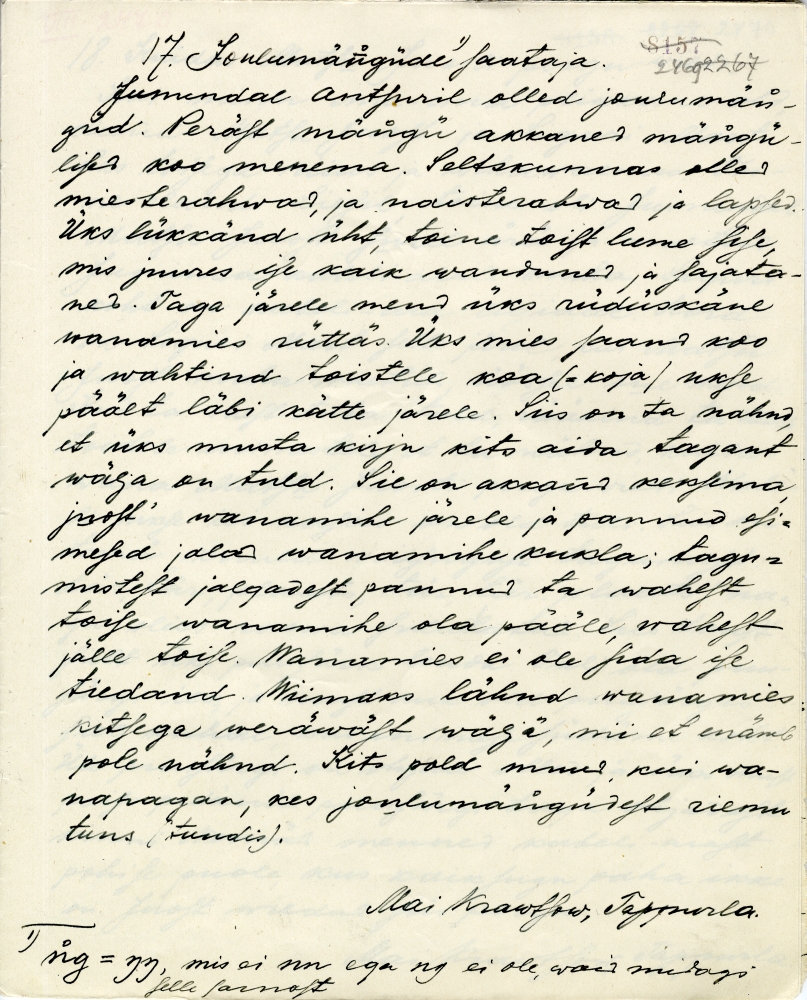 8157
24692267
17. Joulumäńgüde¹⁾ saataja.
Jumendal Antsuril olled joulumäń-
güd. Peräst mäńgü akkaned mäńgü-
lised koo menema. Seltskunnas olled
miesterahwad, ja naisterahwad ja lapsed.
Üks lükkänd üht, toine toist lume sise,
mis juures ise kaik wanduned ja sajata-
ned. Taga järele mend üks rüdüskäne
wanamies rüttäs. Üks mies saand koo
ja wahtind toistele koa (=koja) ukse
päält läbi kätte järele. Siis on ta nähnd,
et üks musta kirju kits aida tagant
wälja on tuld. Sie on akkand keksima,
just' wanamihe järele ja pannud esi-
mesed jalad wanamihe kukla; tagu-
mistest jalgadest pannud ta wahest
toise wanamihe ola pääle, wahest
jälle toise. Wanamies ei ole sida ise
tiedand. Wiimaks lähnd wanamies
kitsega weräwäst wäljä, nii et enämb
pole nähnd. Kits pold muud, kui wa-
napagan, kes joulumäńgüdest riemu
tuns (tundis).
Mai Krawtsow, Tappurla.
¹⁾ ńg = ŋŋ, mis ei nn ega ng ei ole, waid midagi
selle sarnast